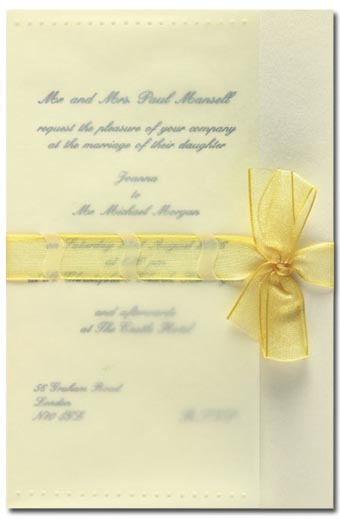 Mr and Mrs. Paul Mansell
request the pleasure of your company
at the marriage of their daughter
Joanna
to
Mr Michael Morgan
on Saturday August
at
and afterwards
at The Castle Hotel
56 Graham Road
London
RSVP